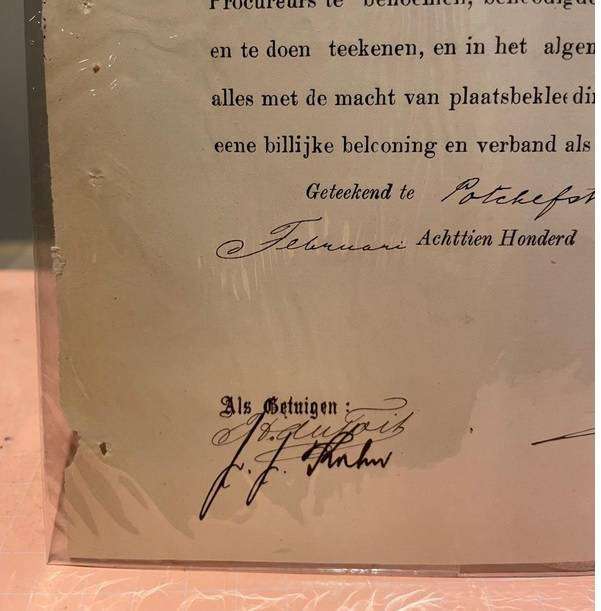 Procureurs te benoemen,
en te doen teekenen, en in het algem
alles met de macht van plaatsbekleedin
eene billijke belooning en verband als
Geteekend te Potchefst
Februari Achttien Honderd
Als Getuigen :
H. du Toit
J. J.